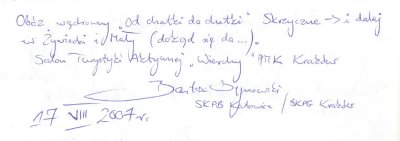 Obóz wędrowny "Od chatki do chatki" Skrzyczne -> i dalej
w Żywiecki i Mały (dokąd się da...).
Salon Turystyki Aktywnej "Wierchy" PTTK Kraków
Bartosz
SKPB Katowice / SKPG Kraków
17 VIII 2007 r.